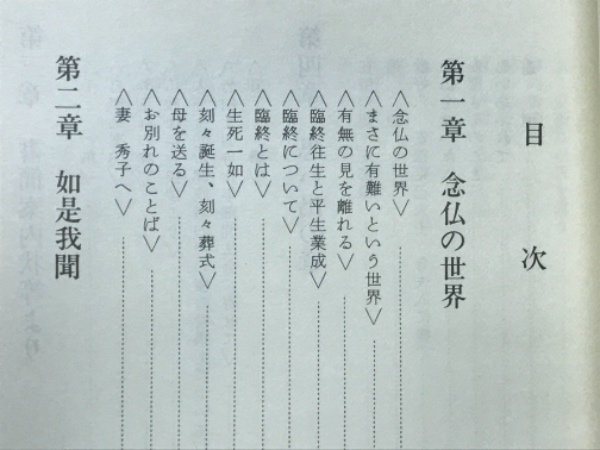 目次
第一章 念仏の世界
〈念仏の世界〉
〈まさに有難いという世界〉
〈有無の見を離れる〉
〈臨終往生と平生業成〉
〈臨終について〉
〈臨終とは〉
〈生死一如〉
〈刻々誕生、刻々葬式〉
〈母を送る〉
〈お別れのことば〉
〈妻 秀子へ〉
第二章 如是我聞